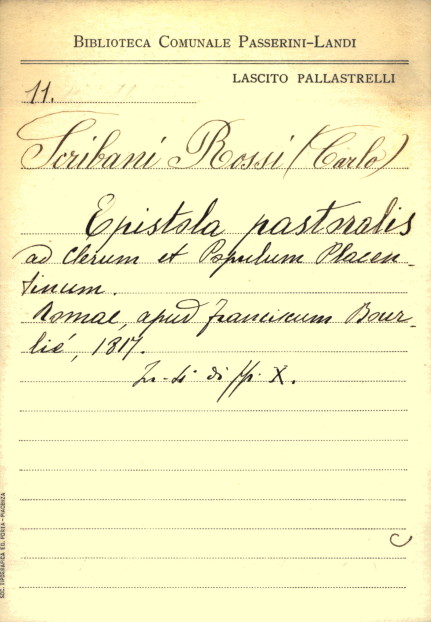 BIBLIOTECA COMUNALE PASSERINI-LANDI
LASCITO PALLASTRELLI
11.
Scribani Rossi (Carlo)
Epistola pastoralis
ad Clerum et Populum Placen-
tinum.
Romae, apud Franciscum Bour-
lié, 1817.
In-4 di pp. X.
SOC. TIPOGRAFICA ED. PORTA - PIACENZA